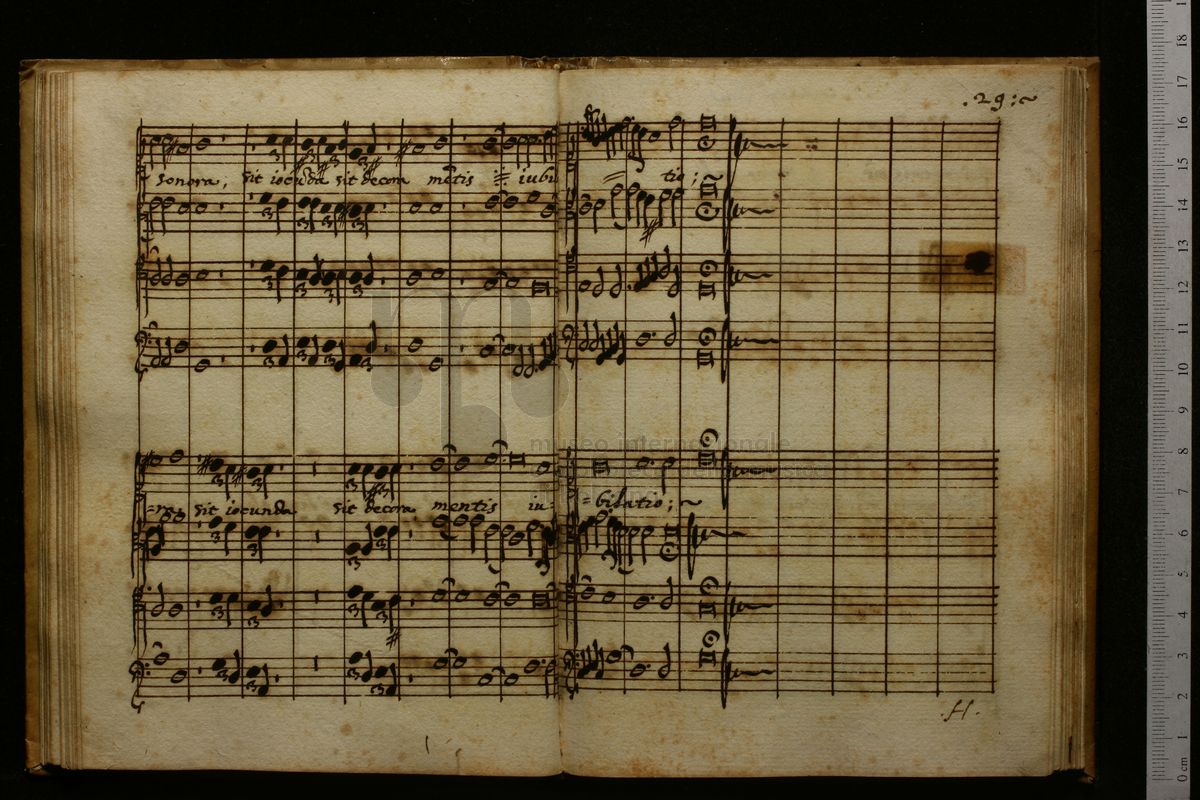 .29:~
sonora, sit iocūda sit decora mētis ij: iubi
tio;~
=ra; sit iocunda sit decora mentis iu=
=bilatio;~
.H.
museo internazionale
0 cm 1 2 3 4 5 6 7 8 9 10 11 12 13 14 15 16 17 18